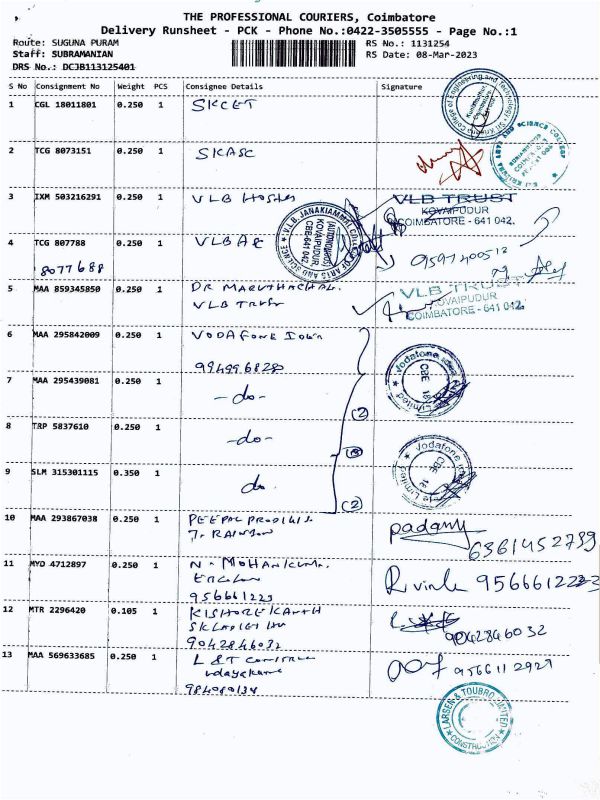 THE PROFESSIONAL COURIERS, Coimbatore
Delivery Runsheet - PCK - Phone No.:0422-3505555 - Page No.:1
Route: SUGUNA PURAM RS No.: 1131254
Staff: SUBRAMANIAN RS Date: 08-Mar-2023
DRS No.: DCJB113125401
S No Consignment No Weight PCS Consignee Details Signature
1 CGL 18011801 0.250 1 SKCET
2 TCG 8073151 0.250 1 SKASC
3 IXM 503216291 0.250 1 VLB Hostel VLB TRUST
KOVAIPUDUR
COIMBATORE - 641 042.
4 TCG 807788 0.250 1 VLBAS 9597400512
8077688
5 MAA 859345850 0.250 1 DR MARUTHACHAL VLB TRUST
VLB Trust KOVAIPUDUR
COIMBATORE - 641 042.
6 MAA 295842009 0.250 1 VODAFONE Idea
7 MAA 295439081 0.250 1 -do- (2)
8 TRP 5837610 0.250 1 -do-
9 SLM 315301115 0.350 1 do. (2)
10 MAA 293867038 0.250 1 padamy 6361452739
11 MYD 4712897 0.250 1 N. MOHAN 9566612223
956661223
12 MTR 2296420 0.105 1 KISHORE KANTH
9042846032 9042846032
13 MAA 569633685 0.250 1 L & T 9566112927
Udayakumar
LARSEN & TOUBRO LIMITED
CONSTRUCTION